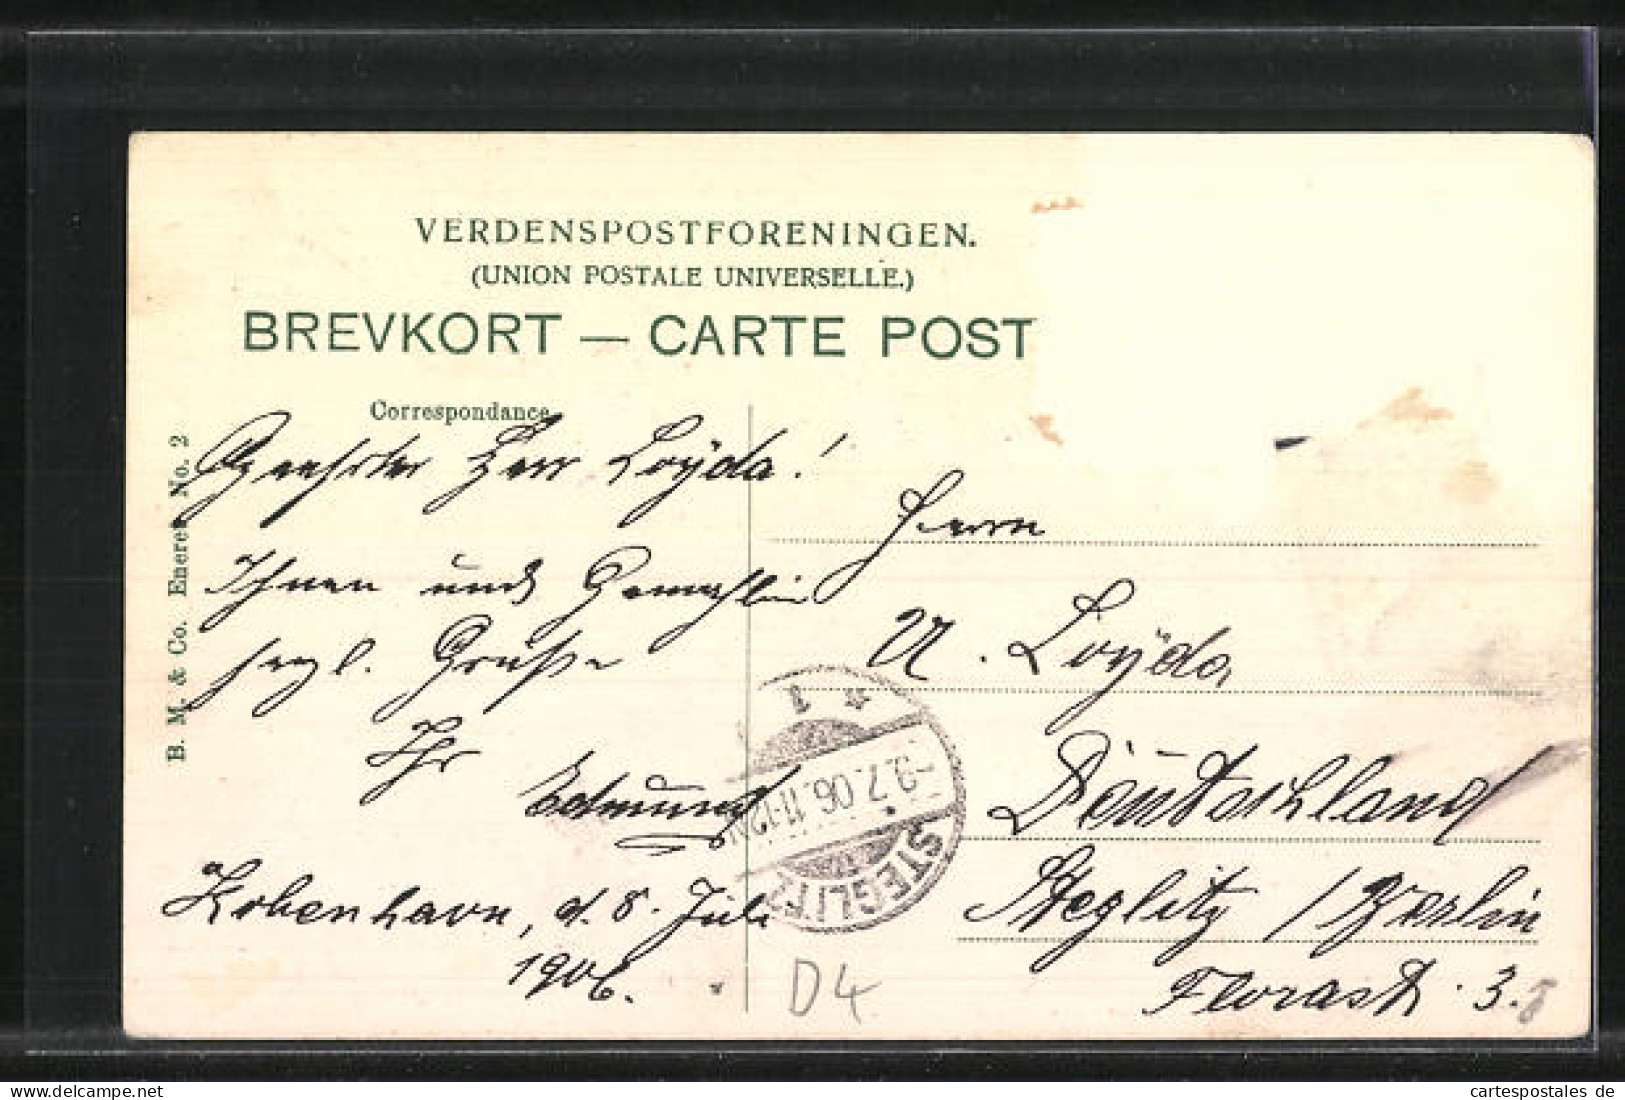 VERDENSPOSTFORENINGEN.
(UNION POSTALE UNIVERSELLE.)
BREVKORT — CARTE POST
Correspondance
B. M. & Co. Eneret No. 2
Geehrter Herr Loÿda!
Ihnen und Gemahlin
herzl. Grüße
Ihr
Kobenhavn, d. 8. Juli
1906.
Herrn
Loÿda
Deutschland
Steglitz / Berlin
Florastr. 3.
1 *
-9.7.06.11-12N
STEGLITZ
D4
cartespostales de